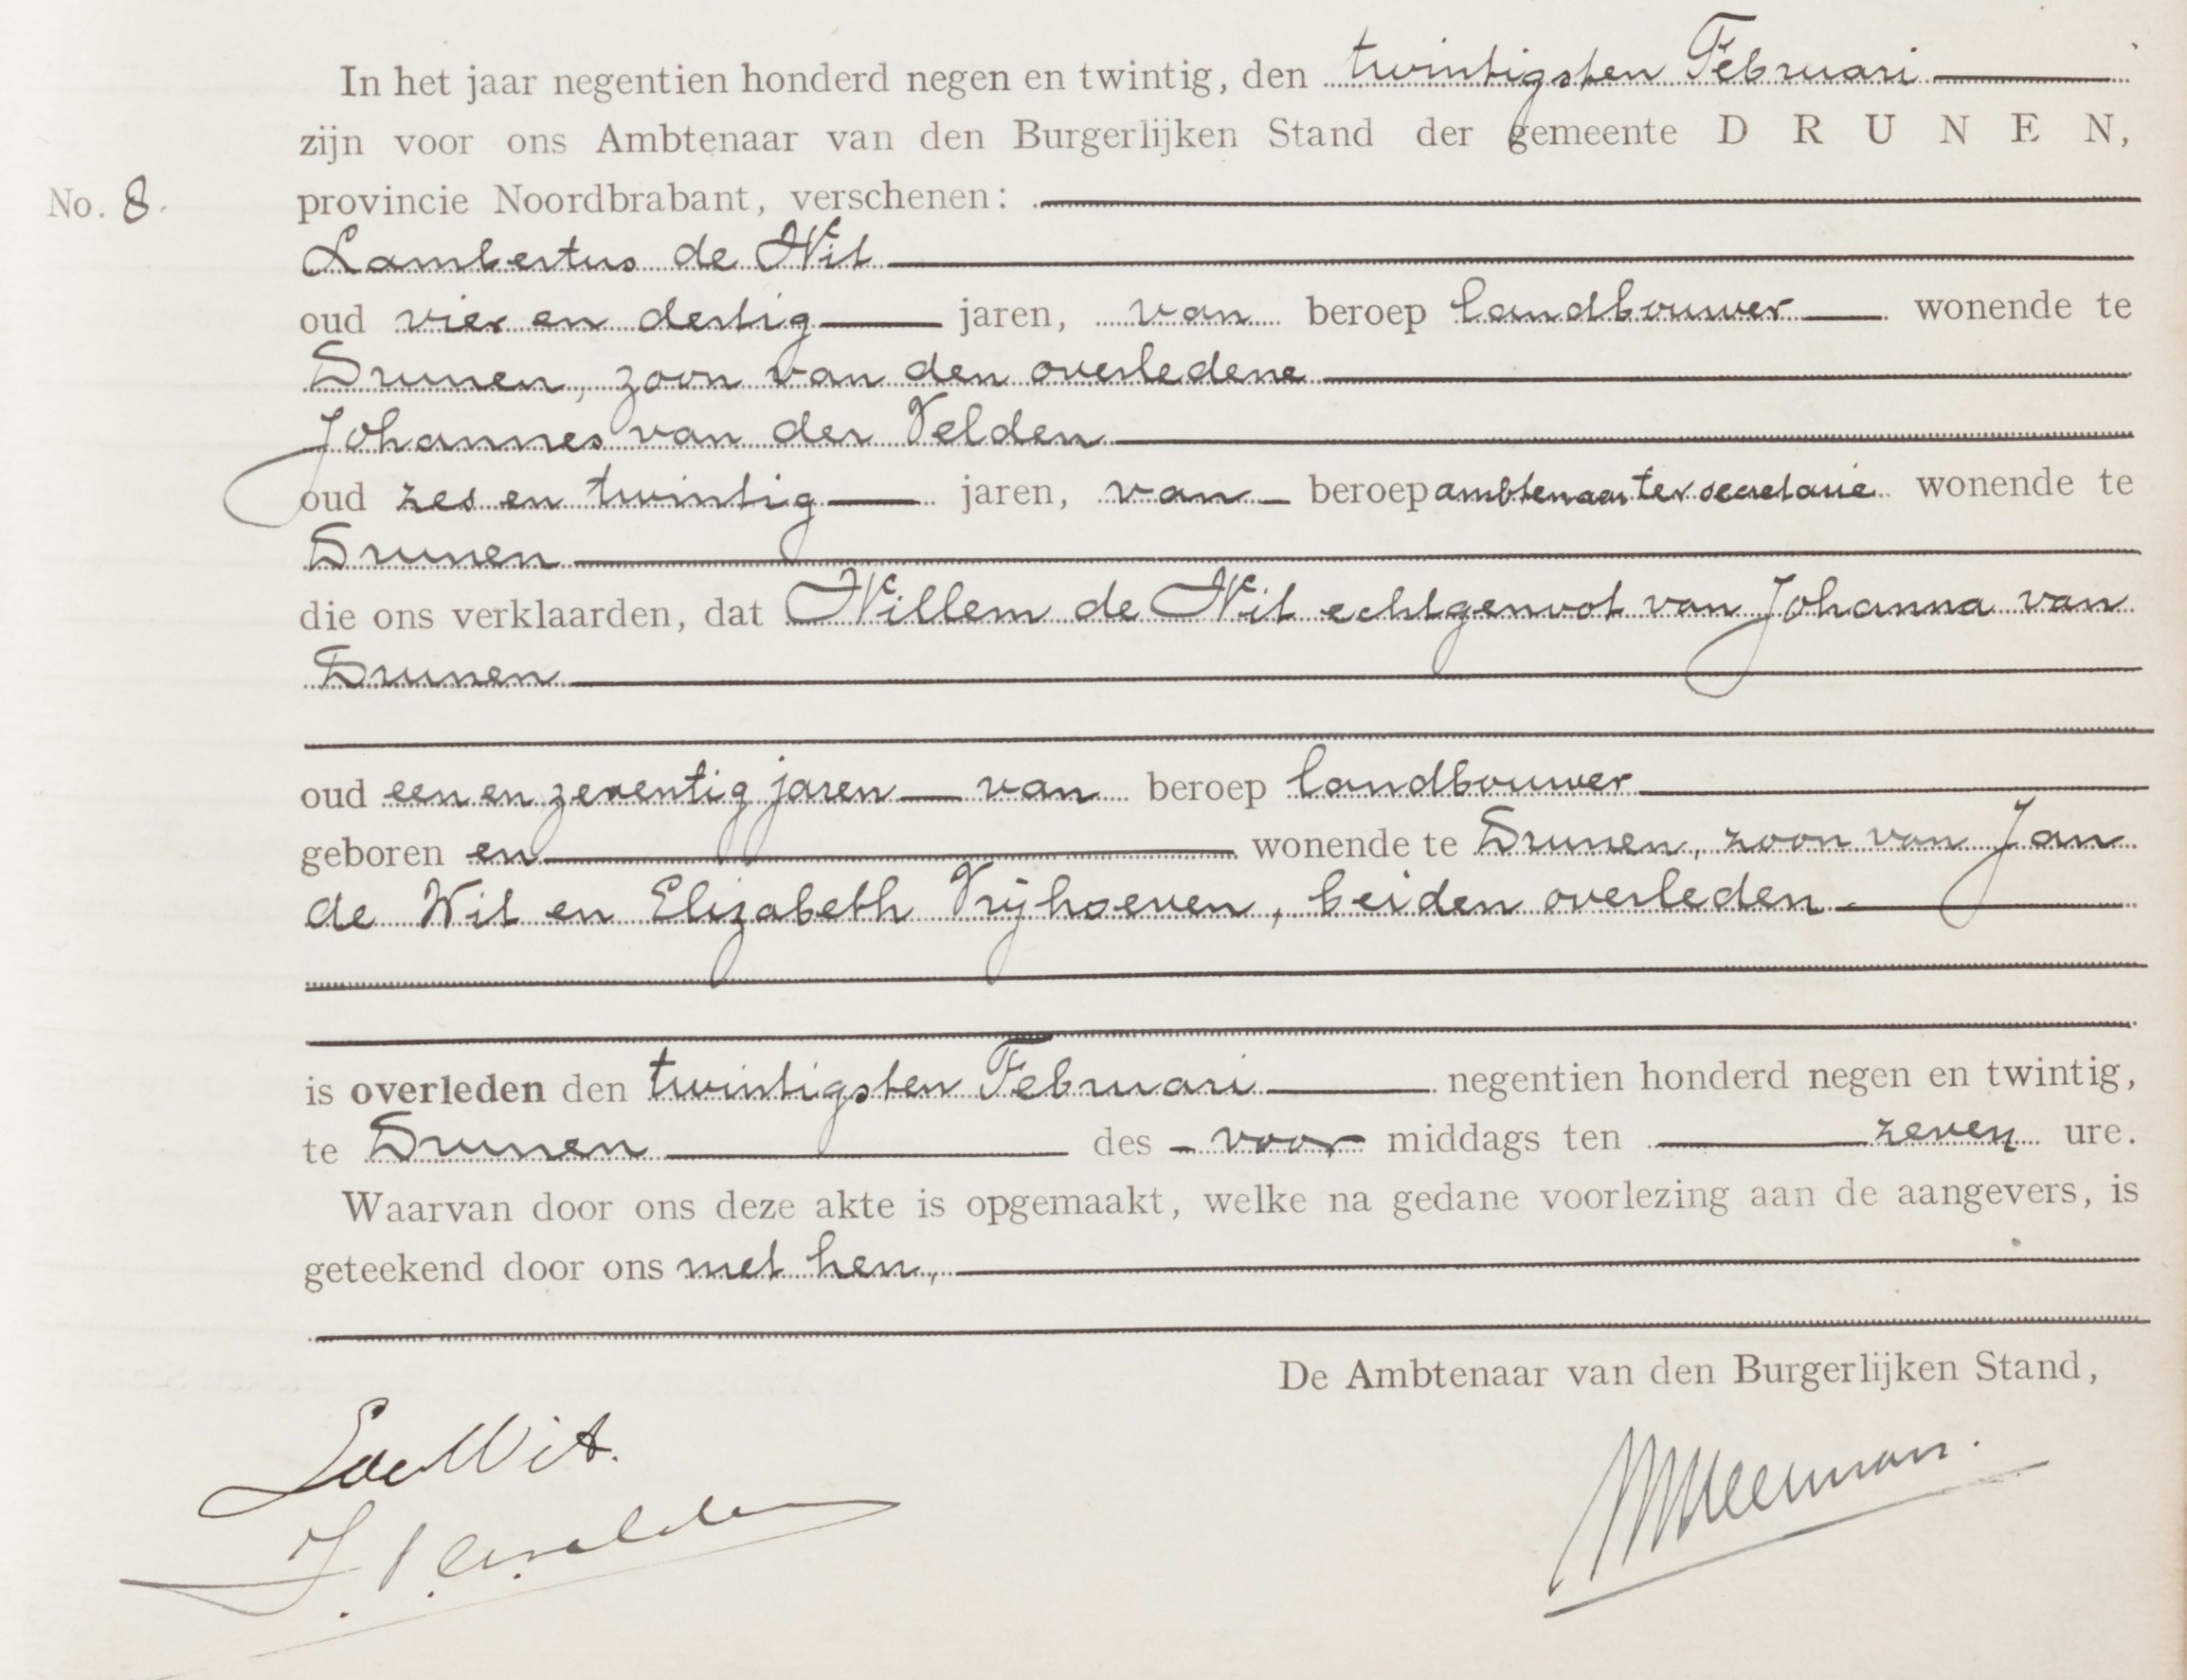 In het jaar negentien honderd negen en twintig, den twintigsten Februari
zijn voor ons Ambtenaar van den Burgerlijken Stand der gemeente D R U N E N,
No. 8. provincie Noordbrabant, verschenen:
Lambertus de Wit
oud vier en dertig jaren, van beroep landbouwer wonende te
Drunen, zoon van den overledene
Johannes van der Velden
oud zes en twintig jaren, van beroep ambtenaar ter secretarie wonende te
Drunen
die ons verklaarden, dat Willem de Wit echtgenoot van Johanna van
Drunen
oud een en zeventig jaren van beroep landbouwer
geboren en wonende te Drunen, zoon van Jan
de Wit en Elizabeth Vrijhoeven, beiden overleden
is overleden den twintigsten Februari negentien honderd negen en twintig,
te Drunen des voor middags ten zeven ure.
Waarvan door ons deze akte is opgemaakt, welke na gedane voorlezing aan de aangevers, is
geteekend door ons met hen,
De Ambtenaar van den Burgerlijken Stand,
L de Wit.